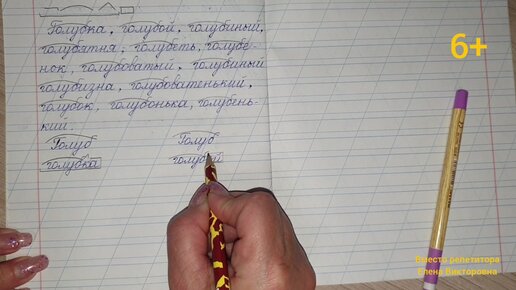 Голубка, голубой, голубиный,
голубятня, голубеть, голубё-
нок, голубоватый, голубиный
голубизна, голубоватенький,
голубок, голубонька, голубень-
кий.
Голуб Голуб
голубка голубой
6+
Вместо репетитора
Елена Викторовна